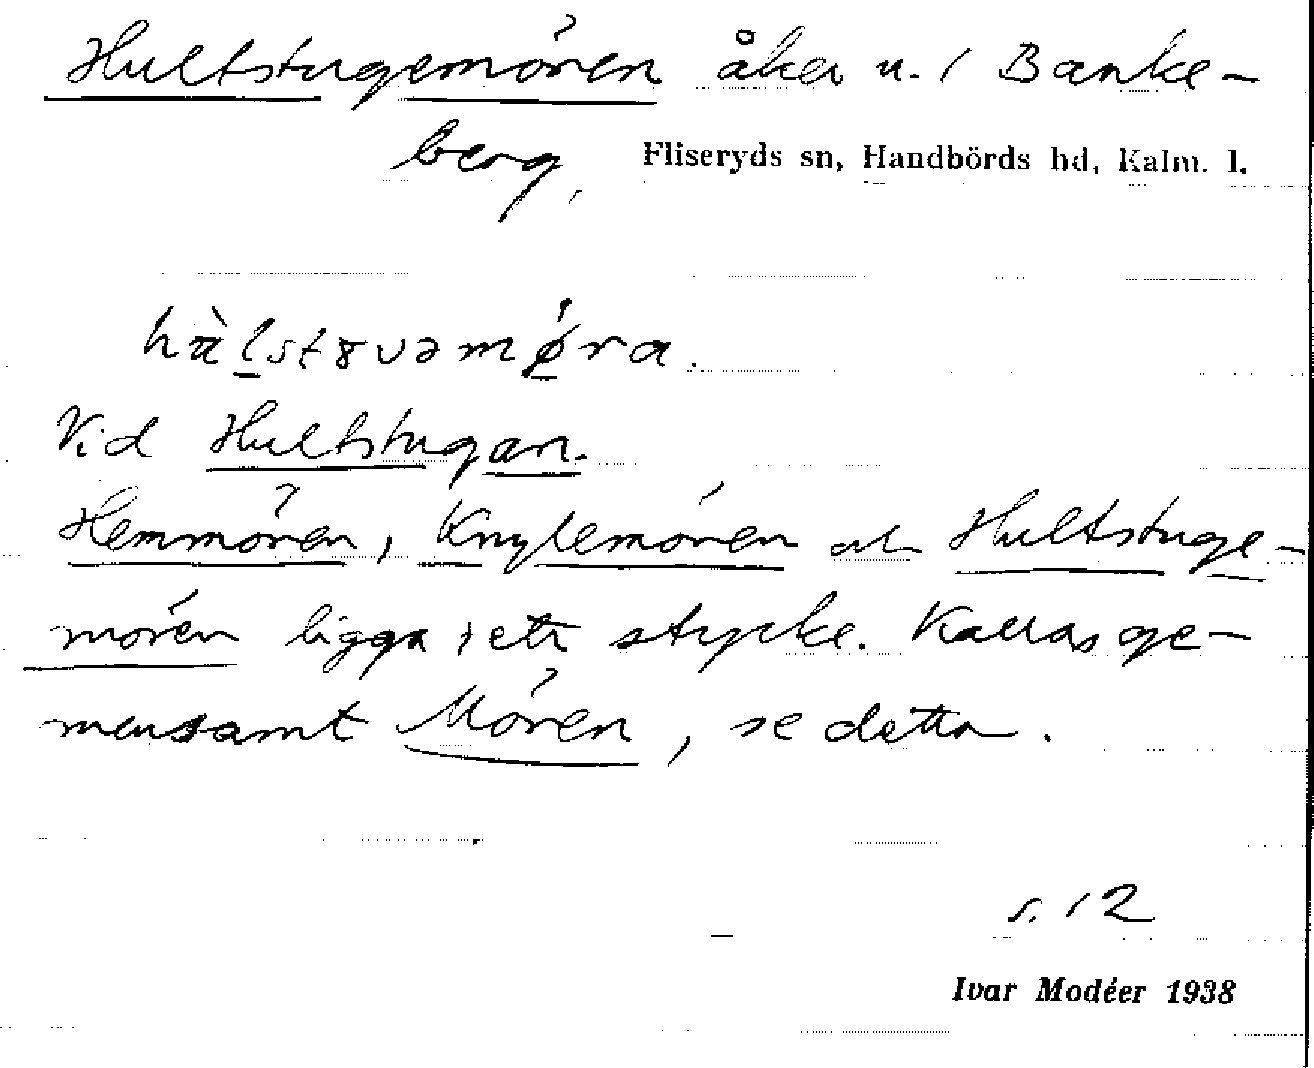 Hultstugemören åker u. 1 Banke-
berg, Fliseryds sn, Handbörds hd, Kalm. l.
Vid Hultstugan.
Hemmören, Knylemören och Hultstuge-
mören ligga i ett stycke. Kallas ge-
mensamt Mören, se detta.
s. 12
Ivar Modéer 1938